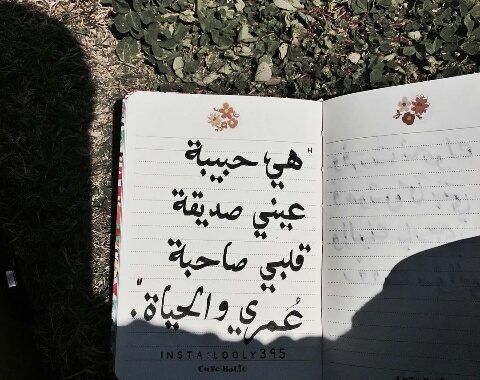 "هي حبيبة
عيني صديقة
قلبي صاحبة
عُمري والحياة."
INSTA:LOOLY395
CuTe HoLiC